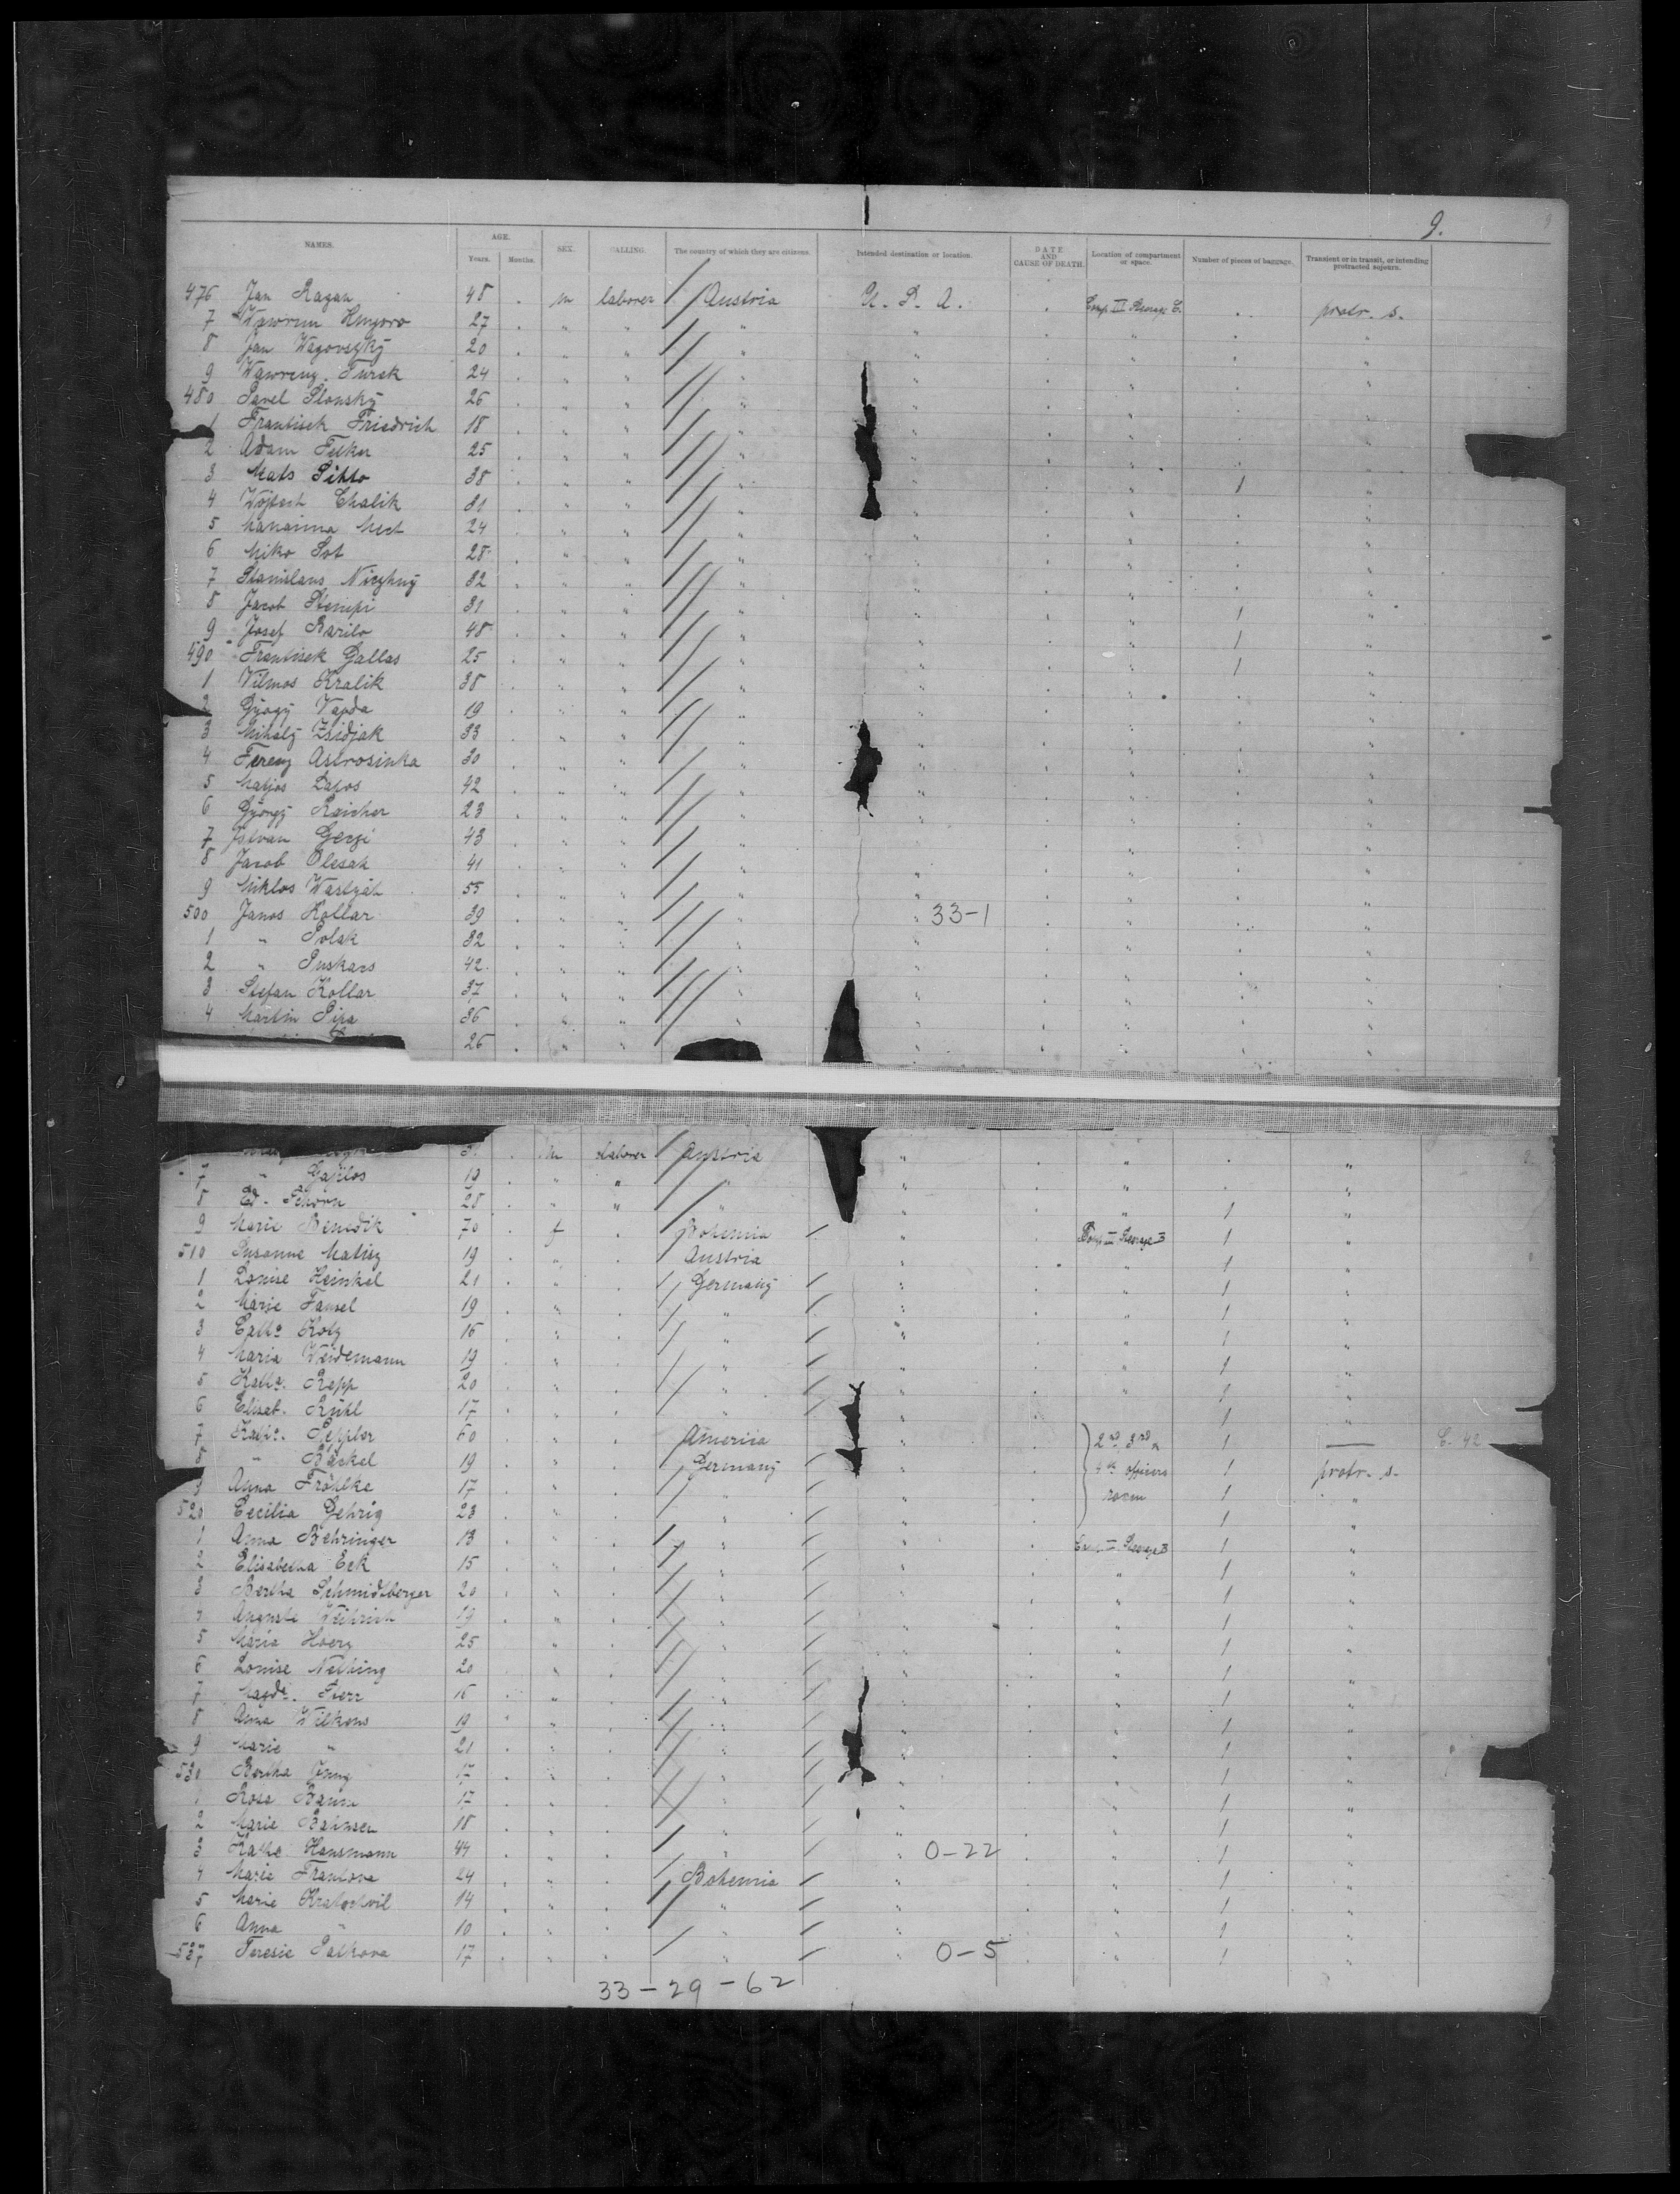 9.
NAMES. AGE. Years. Months. SEX. CALLING. The country of which they are citizens. Intended destination or location. DATE AND CAUSE OF DEATH. Location of compartment or space. Number of pieces of baggage. Transient or in transit, or intending protracted sojourn.
476 Jan Kazan 48 . m laborer Austria U. S. A. . Comp. III Steerage C. . . protr. s.
7 27 . " " " " . " . "
8 Jan 20 . " " " " . " . "
9 Turek 24 . " " " " . " . "
480 Pavel Slonský 26 . " " " " . " . "
1 Frantisek Friedrich 18 . " " " " . " . "
2 Adam Felker 25 . " " " " . " . "
3 Mats Pihto 38 . " " " " . " 1 "
4 Chalik 31 . " " " " . " . "
5 24 . " " " " . " . "
6 Miko 28 . " " " " . " . "
7 Stanislaus 32 . " " " " . " . "
8 Jacob Stempi 31 . " " " " . " 1 "
9 Josef Barilo 48 . " " " " . " 1 "
490 Frantisek Gallas 25 . " " " " . " 1 "
1 Vilmos Kralik 38 . " " " " . " . "
2 Vajda 19 . " " " " . " . "
3 Mihaly Zsidjak 33 . " " " " . " . "
4 Ferenz Astrosinka 30 . " " " " . " . "
5 42 . " " " " . " . "
6 György Reicher 23 . " " " " . " . "
7 Istvan Gerzi 43 . " " " " . " . "
8 Jacob Olesak 41 . " " " " . " . "
9 Miklos 55 . " " " " . " . "
500 Janos Kollar 39 . " " " " 33-1 . " . "
1 " Polak 32 . " " " " . " . "
2 " Puskars 42 . " " " " . " . "
3 Stefan Kollar 37 . " " " " . " . "
4 Martin Pipa 36 . " " " " . " . "
26 . " " " . " . "
3. . m laborer Austria " . " . "
7 " 19 . " " " " . " . "
8 Ed. Schorn 28 . " " " " . " 1 "
9 Marie Benedik 70 . f . Bohemia " . Comp III Steerage B 1 "
510 Susanne Matisz 19 . " . Austria " . " 1 "
1 Louise Heinkel 21 . " . Germany " . " 1 "
2 Marie Fansel 19 . " . " " . " 1 "
3 Cath. Kotz 16 . " . " " . " 1 "
4 Maria Weidemann 19 . " . " " . " 1 "
5 Katha. Rapp 20 . " . " " . " 1 "
6 Elisab. Kühl 17 . " . " " . " 1 "
7 Kath. Seppler 60 . " . America " . 2nd 3rd 1 — C. 42
8 " Räckel 19 . " . Germany " . 4th officers 1 protr. s.
9 Anna Fröhlke 17 . " . " " . room 1 "
520 Cecilia Gehrig 23 . " . " " . 1 "
1 Anna Behringer 18 . " . " " . Steerage B 1 "
2 Elisabetha Eck 15 . " . " " . " 1 "
3 Bertha Schmidtberger 20 . " . " " . " 1 "
4 Auguste 19 . " . " " . " 1 "
5 Maria 25 . " . " " . " 1 "
6 Louise Nething 20 . " . " " . " 1 "
7 Magda. 16 . " . " " . " 1 "
8 Anna Wilkens 19 . " . " " . " 1 "
9 Marie " 21 . " . " " . " 1 "
530 Bertha Jung 17 . " . " " . " 1 "
1 Rosa Baum 17 . " . " " . " 1 "
2 Marie Bahnsen 18 . " . " " . " 1 "
3 Kathe Hansmann 44 . " . " " 0-22 . " 1 "
4 Marie Frantova 24 . " . Bohemia " . " 1 "
5 Marie Kratochvil 14 . " . " " . " 1 "
6 Anna " 10 . " . " " . " 1 "
537 Teresie Palkova 17 . " . " " 0-5 . " 1 "
33-29-62